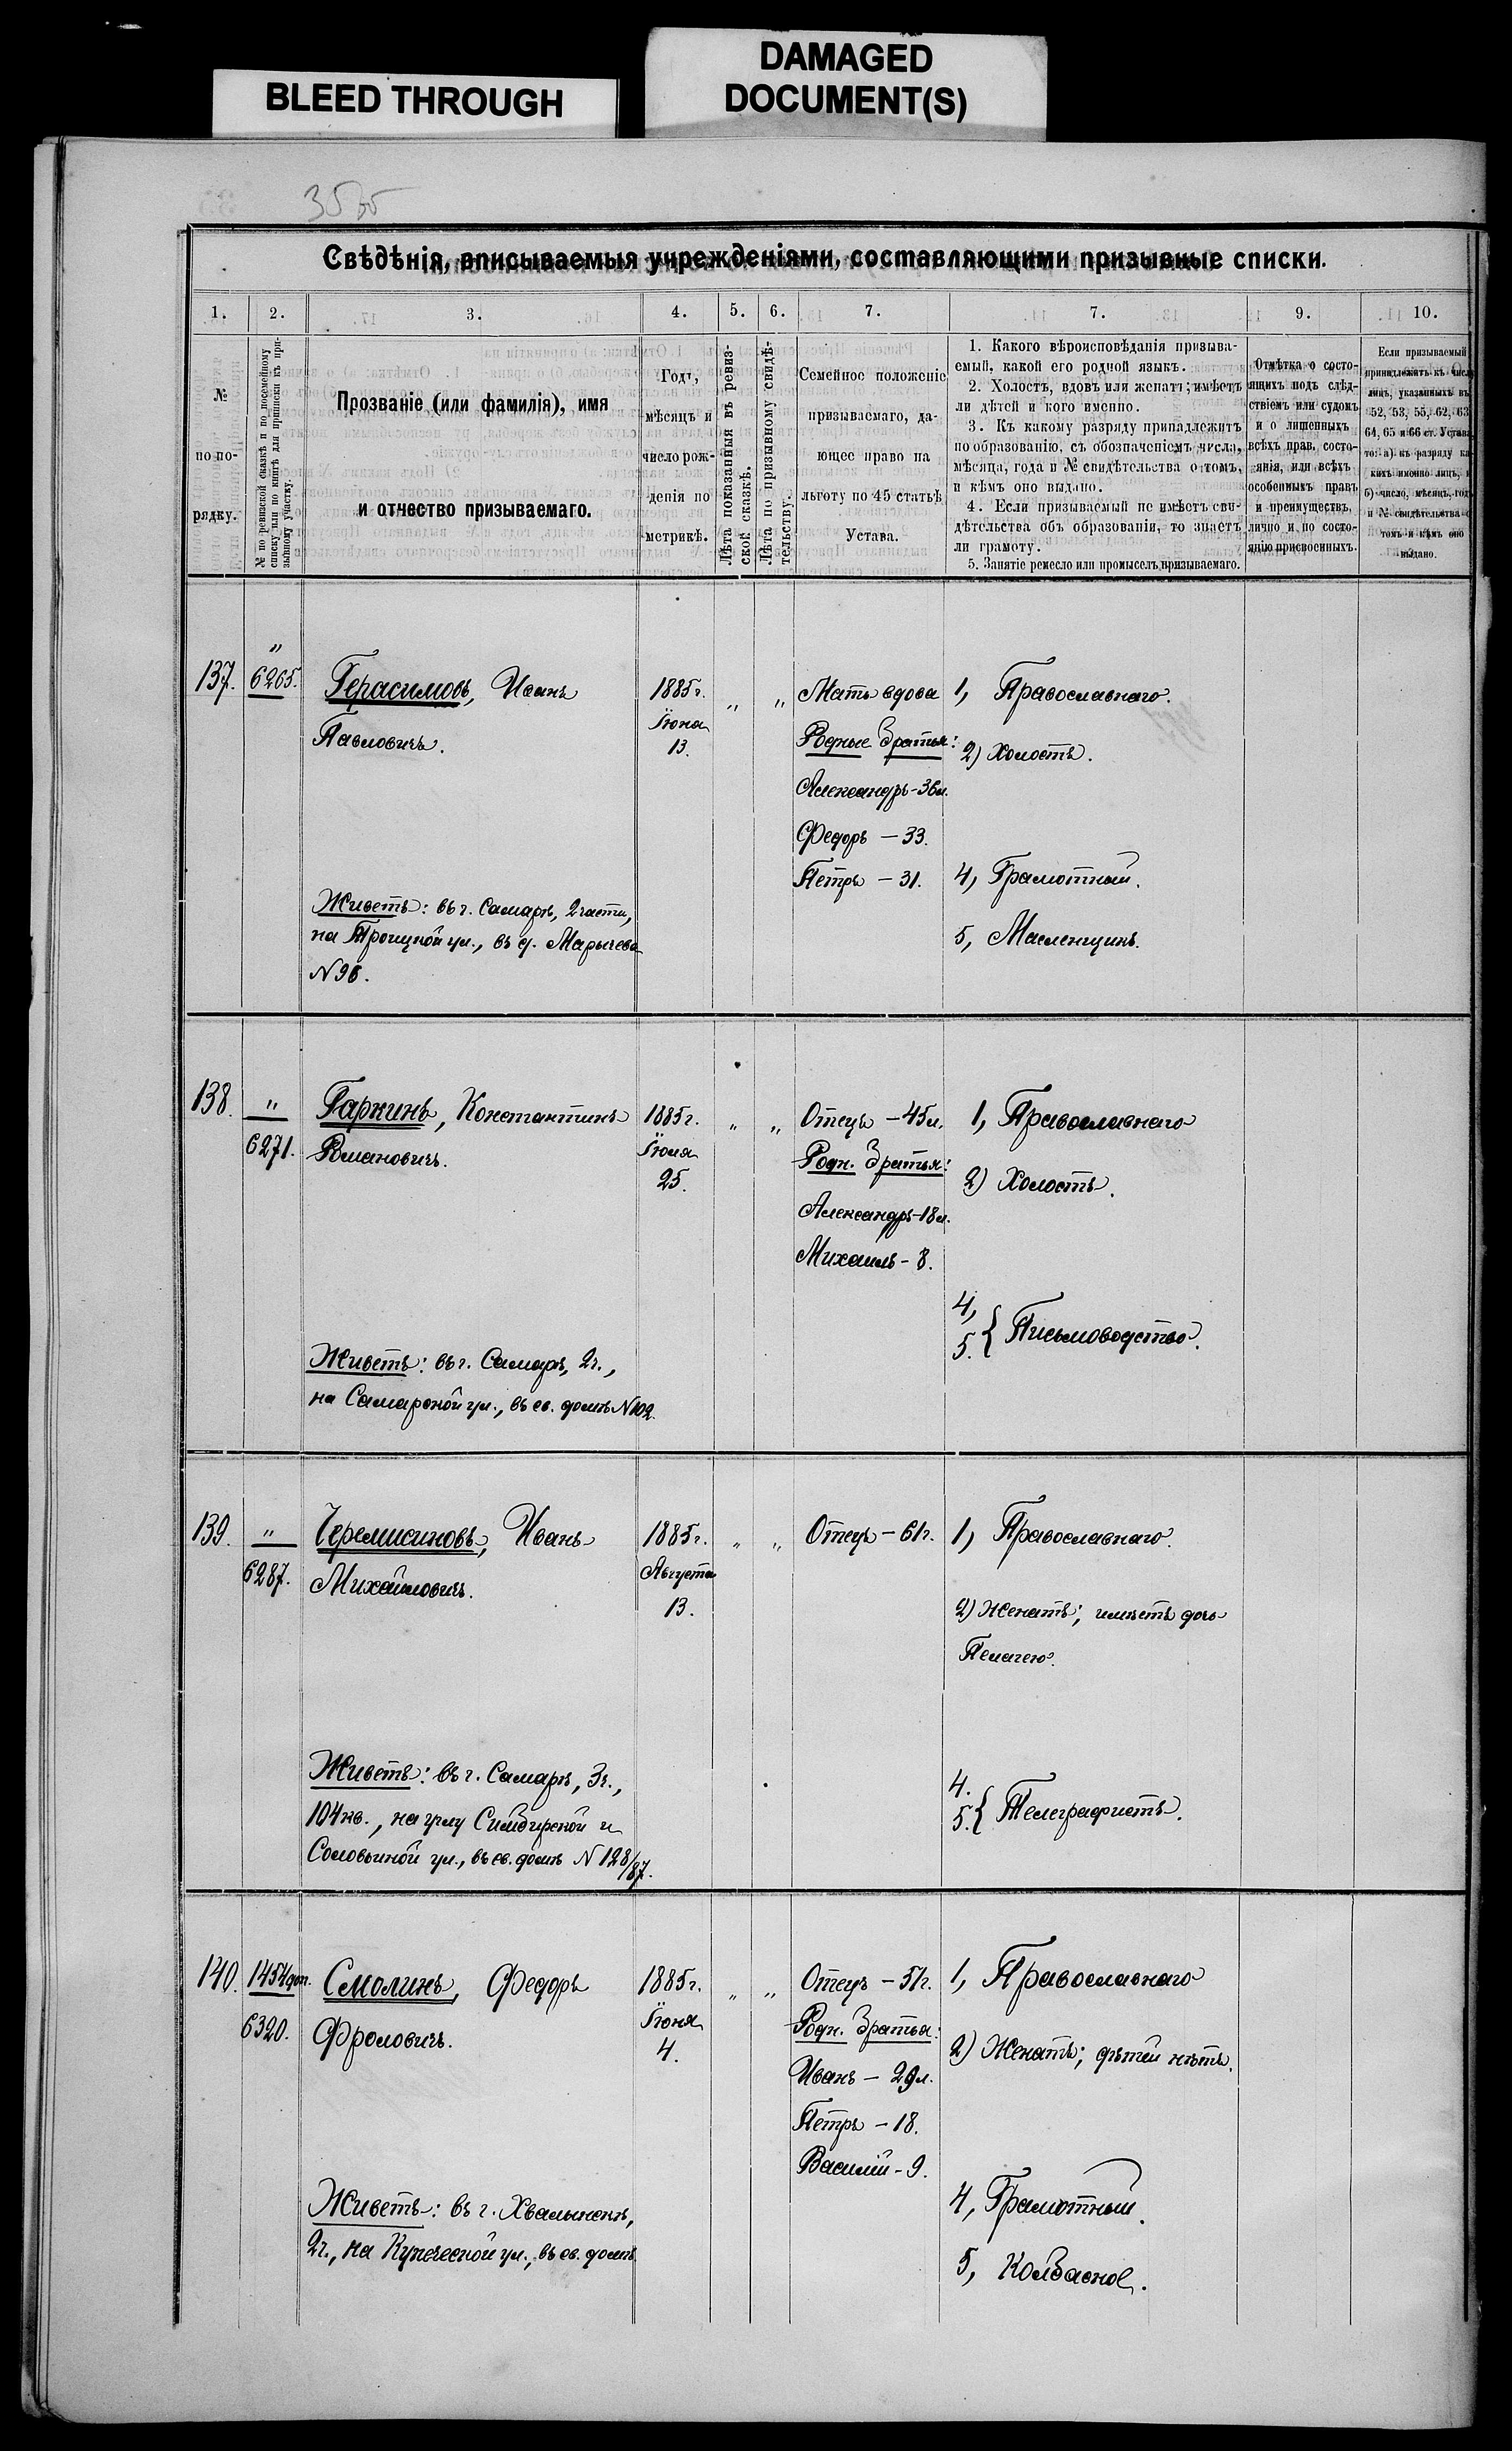 BLEED THROUGH
DAMAGED
DOCUMENT(S)
Свѣдѣнія, вписываемыя учрежденіями, составляющими призывные списки.
1. 2. 3. 4. 5. 6. 7. 7. 9. 10.
№
по по-
рядку.
№ по ревизской сказкѣ и по посемейному
списку или по книгѣ для приписки къ при-
зывному участку.
Прозваніе (или фамилія), имя
и отчество призываемаго.
Годъ,
мѣсяцъ и
число рож-
денія по
метрикѣ.
Лѣта показанныя въ ревиз-
ской сказкѣ.
Лѣта по призывному свидѣ-
тельству.
Семейное положеніе
призываемаго, да-
ющее право на
льготу по 45 статьѣ
Устава.
1. Какого вѣроисповѣданія призыва-
емый, какой его родной языкъ.
2. Холостъ, вдовъ или женатъ; имѣетъ
ли дѣтей и кого именно.
3. Къ какому разряду принадлежитъ
по образованію, съ обозначеніемъ числа,
мѣсяца, года и № свидѣтельства о томъ,
и кѣмъ оно выдано.
4. Если призываемый не имѣетъ сви-
дѣтельства объ образованіи, то знаетъ
ли грамоту.
5. Занятіе ремесло или промыселъ призываемаго.
Отмѣтка о состо-
ящихъ подъ слѣд-
ствіемъ или судомъ
и о лишенныхъ
всѣхъ прав, состо-
янія, или всѣхъ
особенныхъ правъ
и преимуществъ,
лично и по состо-
янію присвоенныхъ.
Если призываемый
принадлежитъ къ числу
лицъ, указанныхъ въ
52, 53, 55, 62, 63
64, 65 и 66 ст. Устава,
то: а) къ разряду ка-
кихъ именно лицъ, и
б) число, мѣсяцъ, годъ
и № свидѣтельства о
томъ и кѣмъ оно
выдано.
137. " 6265. Герасимовъ, Иванъ
Павловичъ.
Живетъ: въ г. Самарѣ, 2 части,
на Троицкой ул., въ д. Марычева
N 98.
1885 г.
Іюня
13.
" "
Мать вдова
Родные братья:
Александръ - 36 л.
Федоръ — 33.
Петръ — 31.
1, Православнаго.
2) Холостъ.
4, Грамотный.
5, Масленщикъ.
138. " 6271. Гаркинъ, Константинъ
Романовичъ.
Живетъ: въ г. Самарѣ, 2 ч.,
на Самарской ул., въ св. домѣ N 102.
1885 г.
Іюля
25.
" "
Отецъ — 45 л.
Родн. братья:
Александръ - 18 л.
Михаилъ - 8.
1, Православнаго
2) Холостъ.
4,
5. { Письмоводство.
139. " 6287. Черемисиновъ, Иванъ
Михайловичъ.
Живетъ: въ г. Самарѣ, 3 ч.,
104 кв., на углу Симбирской и
Соловьиной ул., въ св. домѣ N 128/87.
1885 г.
Августа
13.
" "
Отецъ — 61 г.
1, Православнаго.
2) Женатъ; имѣетъ дочь
Пелагею.
4.
5. { Телеграфистъ.
140. 1454 доп. 6320. Смолинъ, Федоръ
Фроловичъ.
Живетъ: въ г. Хвалынскѣ,
2 ч., на Купеческой ул., въ св. домѣ.
1885 г.
Іюня
4.
" "
Отецъ — 51 г.
Родн. братья:
Иванъ — 29 л.
Петръ — 18.
Василій - 9.
1, Православнаго
2) Женатъ; дѣтей нѣтъ.
4, Грамотный.
5, Колбасное.